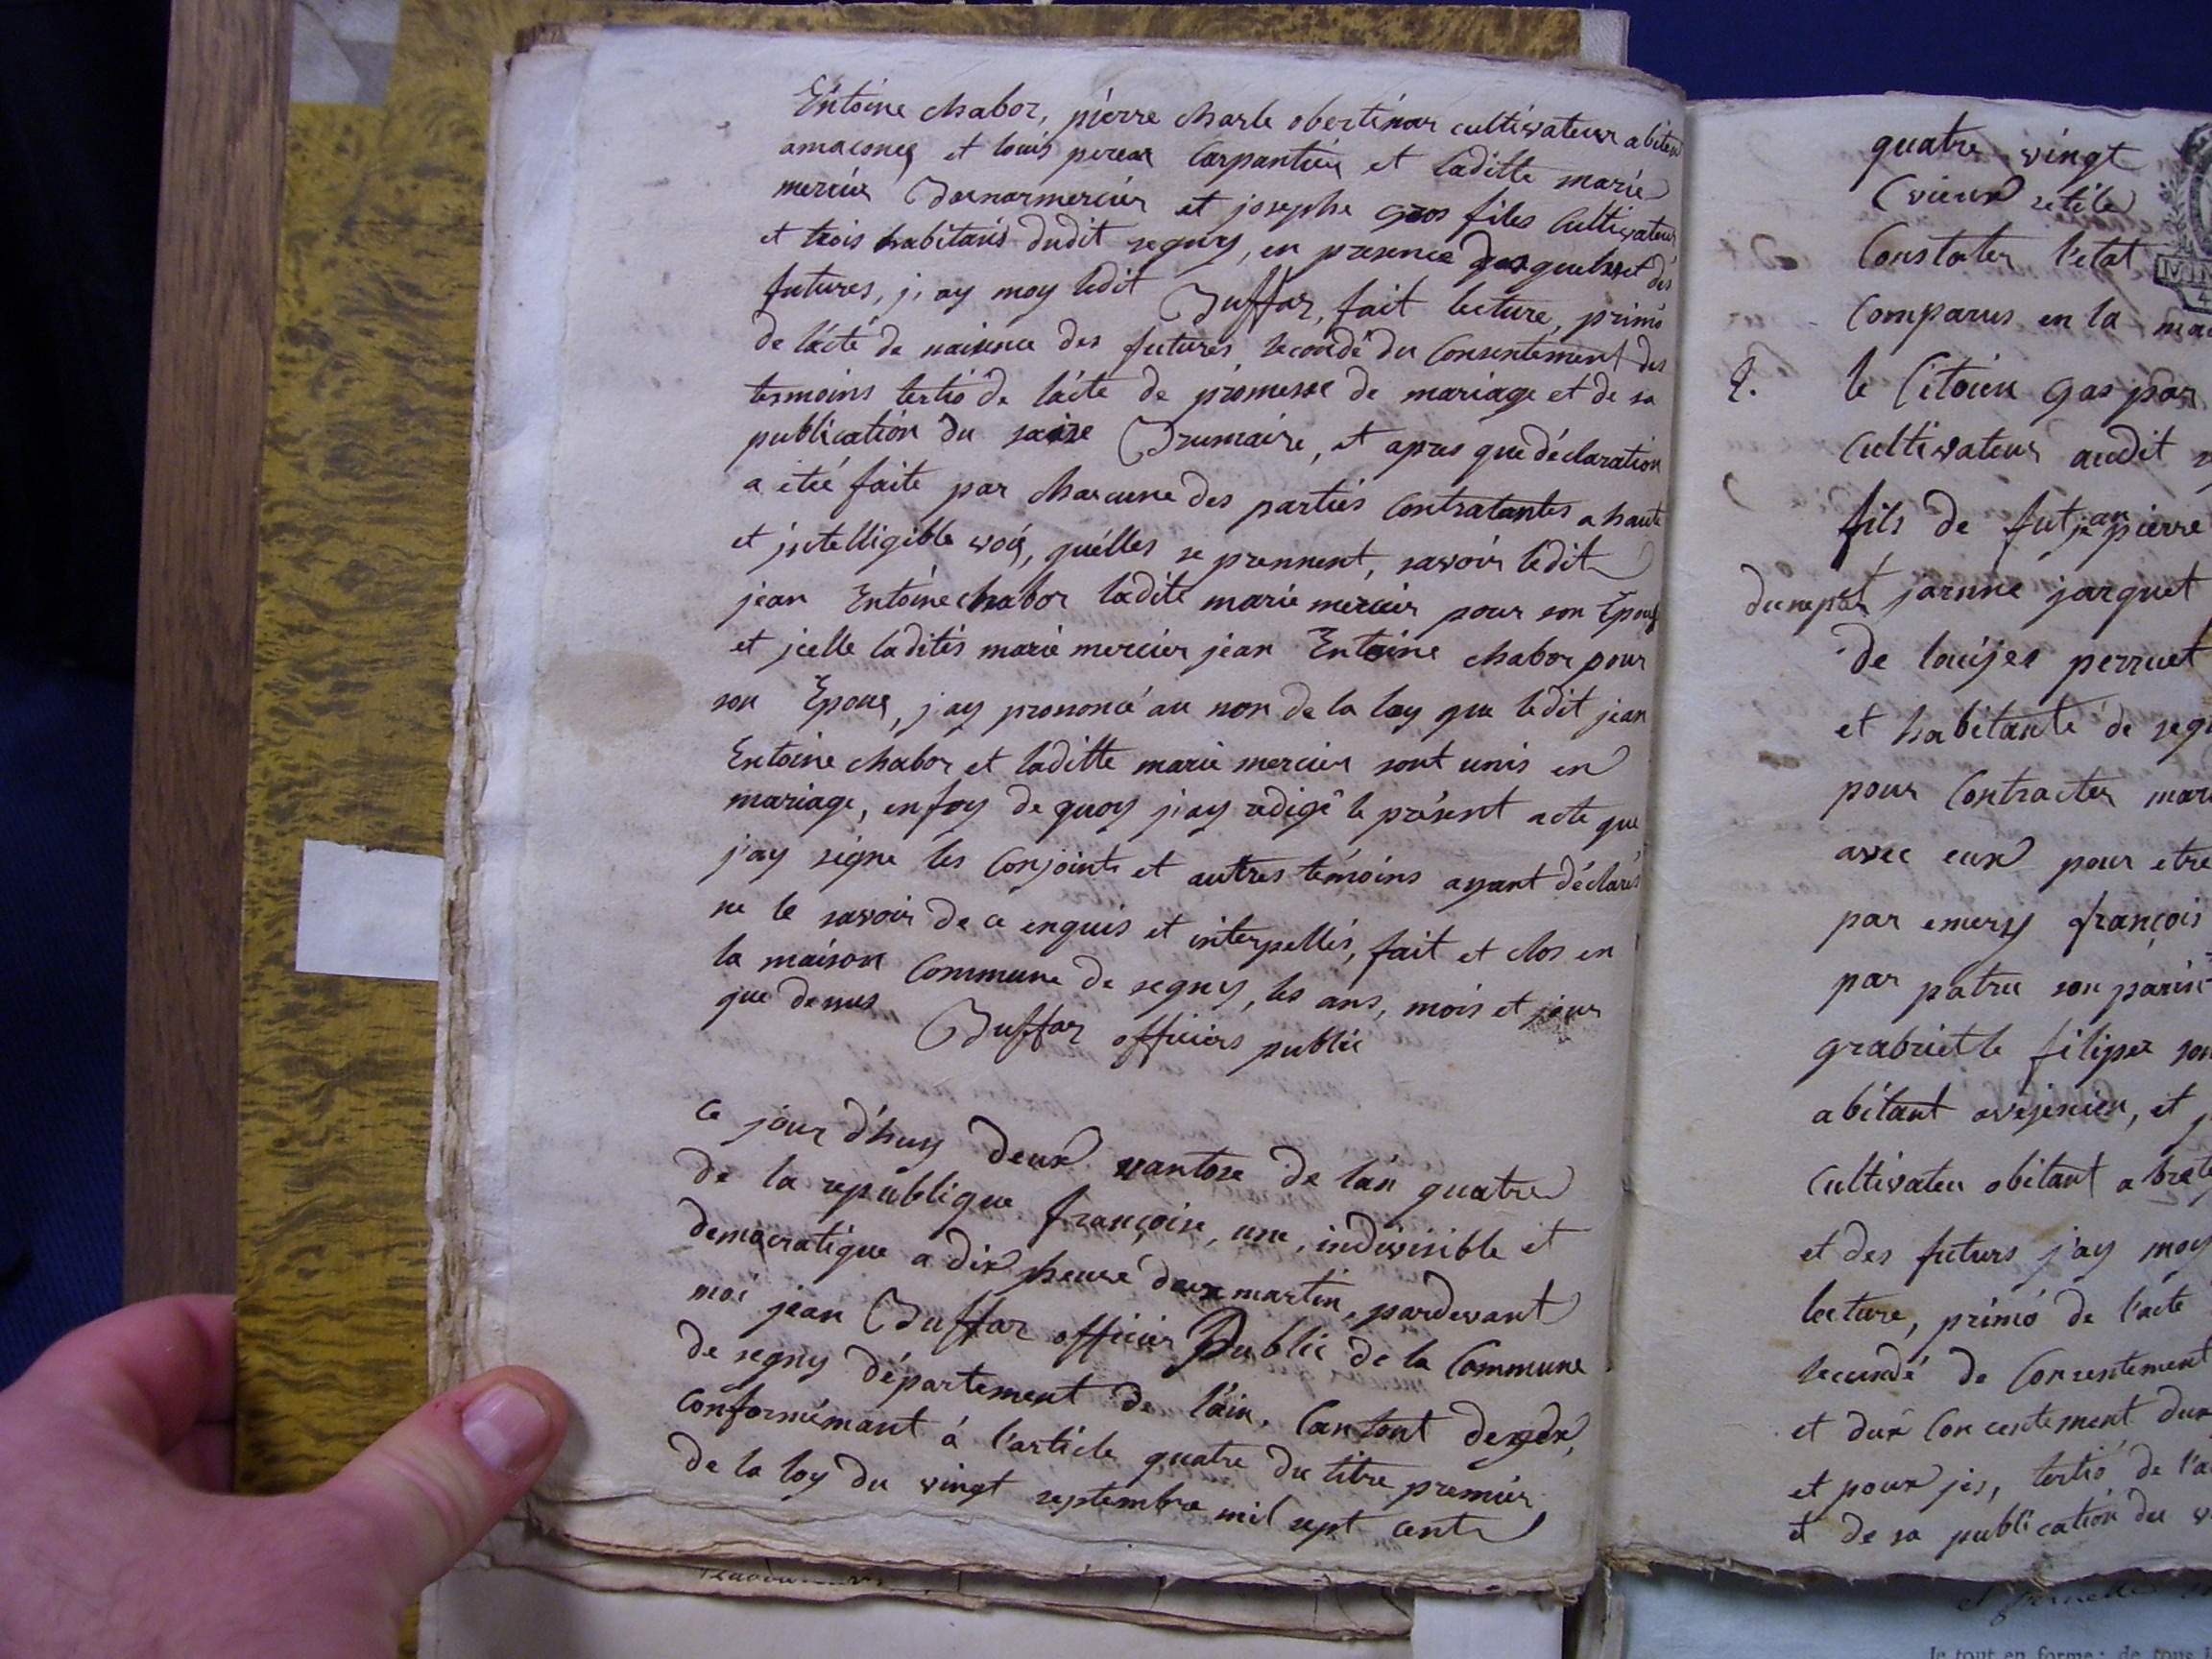 Entoine chabor, pierre charle obertinar cultivateur abitan
amaconeg et louis perear Carpantier et laditte marie
mercier Barnarmercier et josephe gros files Cultivateur
et trois habitans dudit segny, en presence desquels et des
futures, j,ay moy ledit Buffar, fait lecture, primo
de lácte de naisence des futures secondé du Consentement des
termoins tertio de lácte de promesse de mariage et de sa
publication du saize Brumaire, et apres que déclaration
a eteé faite par chacune des parties Contratantes a haute
et jntelligible voix, quélles se prennent, savoir ledit
jean Entoine chabor ladite marie mercier pour son Epous
et jcelle ladites marie mercier jean Entoine chabor pour
son Epoux, j,ay prononcé au non de la loy que ledit jean
Entoine chabor et laditte marie mercier sont unis en
mariage, en foy de quoy j,ay redigé le présent acte que
j'ay signe les Conjoints et autres témoins ayant déclarés
ne le savoir de ce enquis et interpellés, fait et clos en
la maison Commune de segny, les ans, mois et jour
que denus Buffar officiers public
Ce jour d'huy deux vantose de lán quatre
de la republique françoise, une, indivisible et
democratique a dix heure deux martin, pardevant
moi jean Buffar officier Public de la Commune
de segny département de láin, Cantont degex,
Conformémant á l'article quatre du titre premier
de la loy du vingt septembre mil sept cent
quatre vingt
Constater l'etat
Comparus en la mai
2. le Citoien gaspar
Cultivateur audit
fils de fut jean pierre
et jeanne jarquet
de louijes perruet
et habitante de segn
pour Contracter mari
avec eux pour etre
par emery françois
par patru son parin
grabrielle filiper son
abitant
Cultivateu abitant a
et des futurs j'ay moy
lecture, primó de l'acte
secundé de Consentement
et dun Concentement dun
et pour jes, tertió de l'a
et de sa publication du